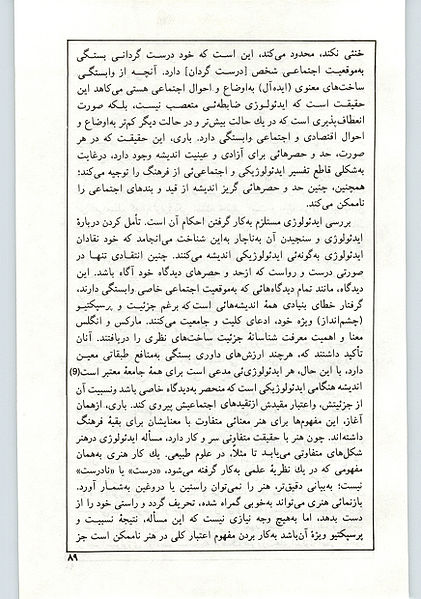 خنثی نکند، محدود می‌کند، این است که خود درست گردانی بستگی
به‌موقعیت اجتماعی شخص [درست گردان] دارد. آنچه از وابستگی
ساخت‌های معنوی (ایده‌آل) به‌اوضاع و احوال اجتماعی هستی می‌کاهد این
حقیقت است که ایدئولوژی ضابطه‌ئی متعصب نیست، بلکه صورت
انعطاف‌پذیری است که در یك حالت بیش‌تر و در حالت دیگر کم‌تر به‌اوضاع و
احوال اقتصادی و اجتماعی وابستگی دارد. باری، این حقیقت که در هر
صورت، حد و حصرهائی برای آزادی و عینیت اندیشه وجود دارد، درغایت
به‌شکلی قاطع تفسیر ایدئولوژیکی و اجتماعی‌ئی از فرهنگ را توجیه می‌کند؛
همچنین، چنین حد و حصرهائی گریز اندیشه از قید و بندهای اجتماعی را
ناممکن می‌کند.
بررسی ایدئولوژی مستلزم به‌کار گرفتن احکام آن است. تأمل کردن دربارهٔ
ایدئولوژی و سنجیدن آن به‌ناچار به‌این شناخت می‌انجامد که خود نقادان
ایدئولوژی به‌گونه‌ئی ایدئولوژیکی اندیشه می‌کنند. چنین انتقادی تنها در
صورتی درست و رواست که ازحد و حصرهای دیدگاه خود آگاه باشد. این
دیدگاه، مانند تمام دیدگاه‌هائی که به‌موقعیت اجتماعی خاصی وابستگی دارند،
گرفتار خطای بنیادی همهٔ اندیشه‌هائی است که برغم جزئیت و پرسپکتیو
(چشم‌انداز) ویژه خود، ادعای کلیت و جامعیت می‌کنند. مارکس و انگلس
معنا و اهمیت معرفت شناسانهٔ جزئیت ساخت‌های نظری را دریافتند. آنان
تأکید داشتند که، هرچند ارزش‌های داوری بستگی به‌منافع طبقاتی معین
دارد، با این حال، هر ایدئولوژی‌ئی مدعی است برای همهٔ جامعهٔ معتبر است(9)
اندیشه هنگامی ایدئولوژیکی است که منحصر به‌دیدگاه خاصی باشد ونسبیت آن
از جزئیتش، واعتبار مقیدش ازتقیدهای اجتماعیش پیروی کند. باری، ازهمان
آغاز، این مفهوم‌ها برای هنر معنائی متفاوت با معنایشان برای بقیهٔ فرهنگ
داشته‌اند. چون هنر با حقیقت متفاوتی سر و کار دارد، مسأله ایدئولوژی درهنر
شکل‌های متفاوتی می‌یابد تا مثلاً، در علوم طبیعی. یك کار هنری به‌همان
مفهومی که در یك نظریهٔ علمی به‌کار گرفته می‌شود، «درست» یا «نادرست»
نیست؛ به‌بیانی دقیق‌تر، هنر را نمی‌توان راستین یا دروغین به‌شمار آورد.
بازنمائی هنری می‌تواند به‌خوبی گمراه شده، تحریف گردد و راستی خود را از
دست بدهد، اما به‌هیچ وجه نیازی نیست که این مسأله، نتیجهٔ نسبیت و
پرسپکتیو ویژهٔ آن‌باشد به‌کار بردن مفهوم اعتبار کلی در هنر ناممکن است جز
۸۹